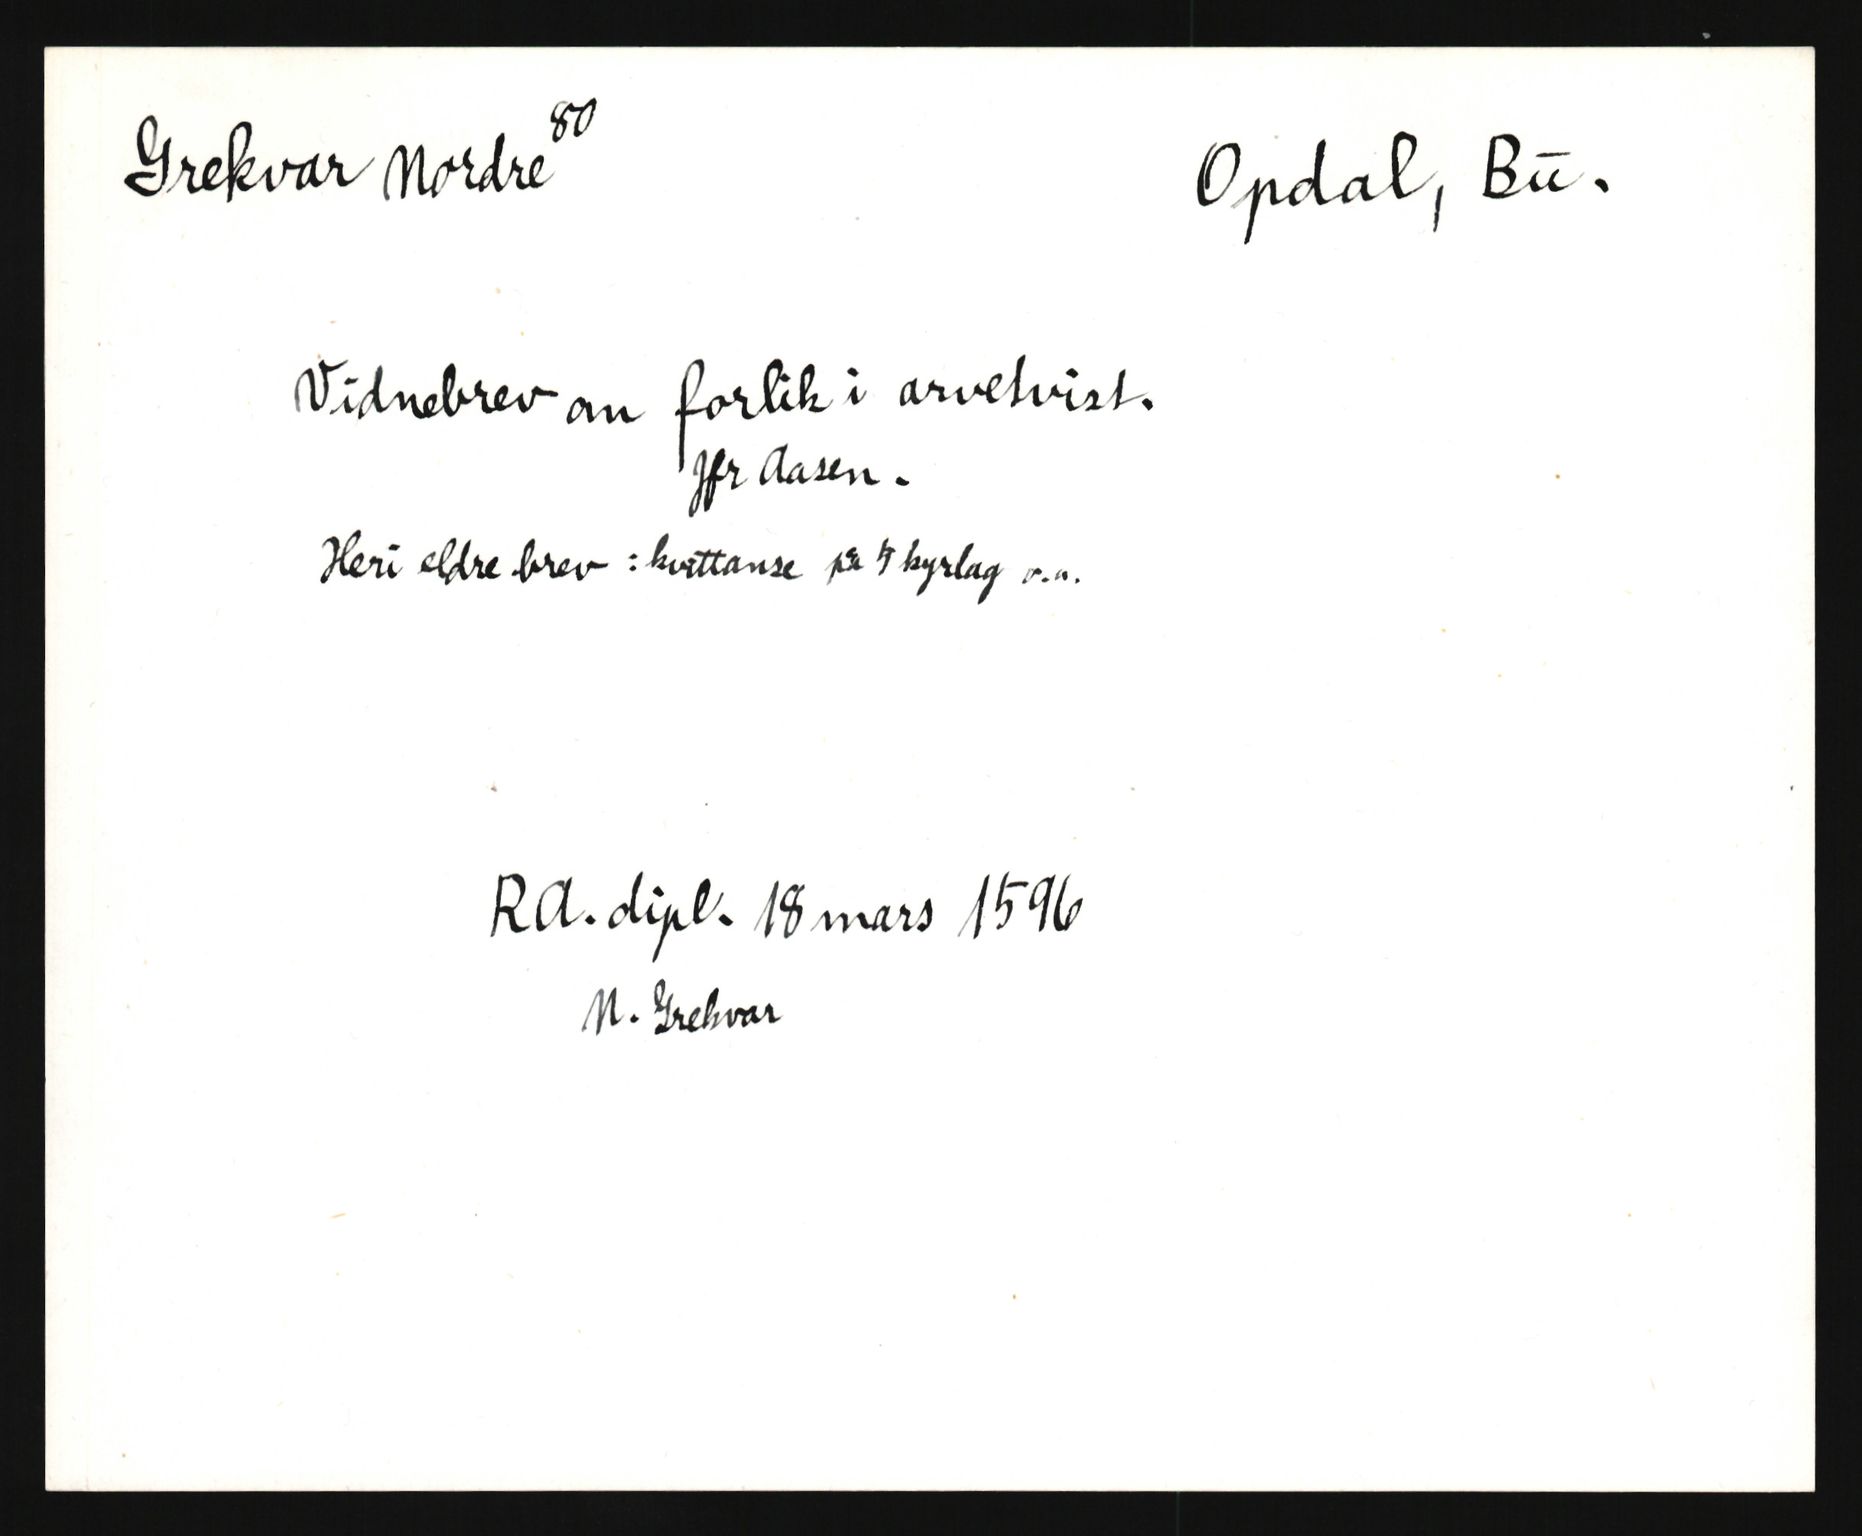 Grekvar Nordre 80 Opdal, Bu.
Vidnebrev om forlik i arvetvist.
Jfr Aasen.
Heri eldre brev : kvittanse på 4 kyrlag o.a.
RA. dipl. 18 mars 1596
N. Grekvar